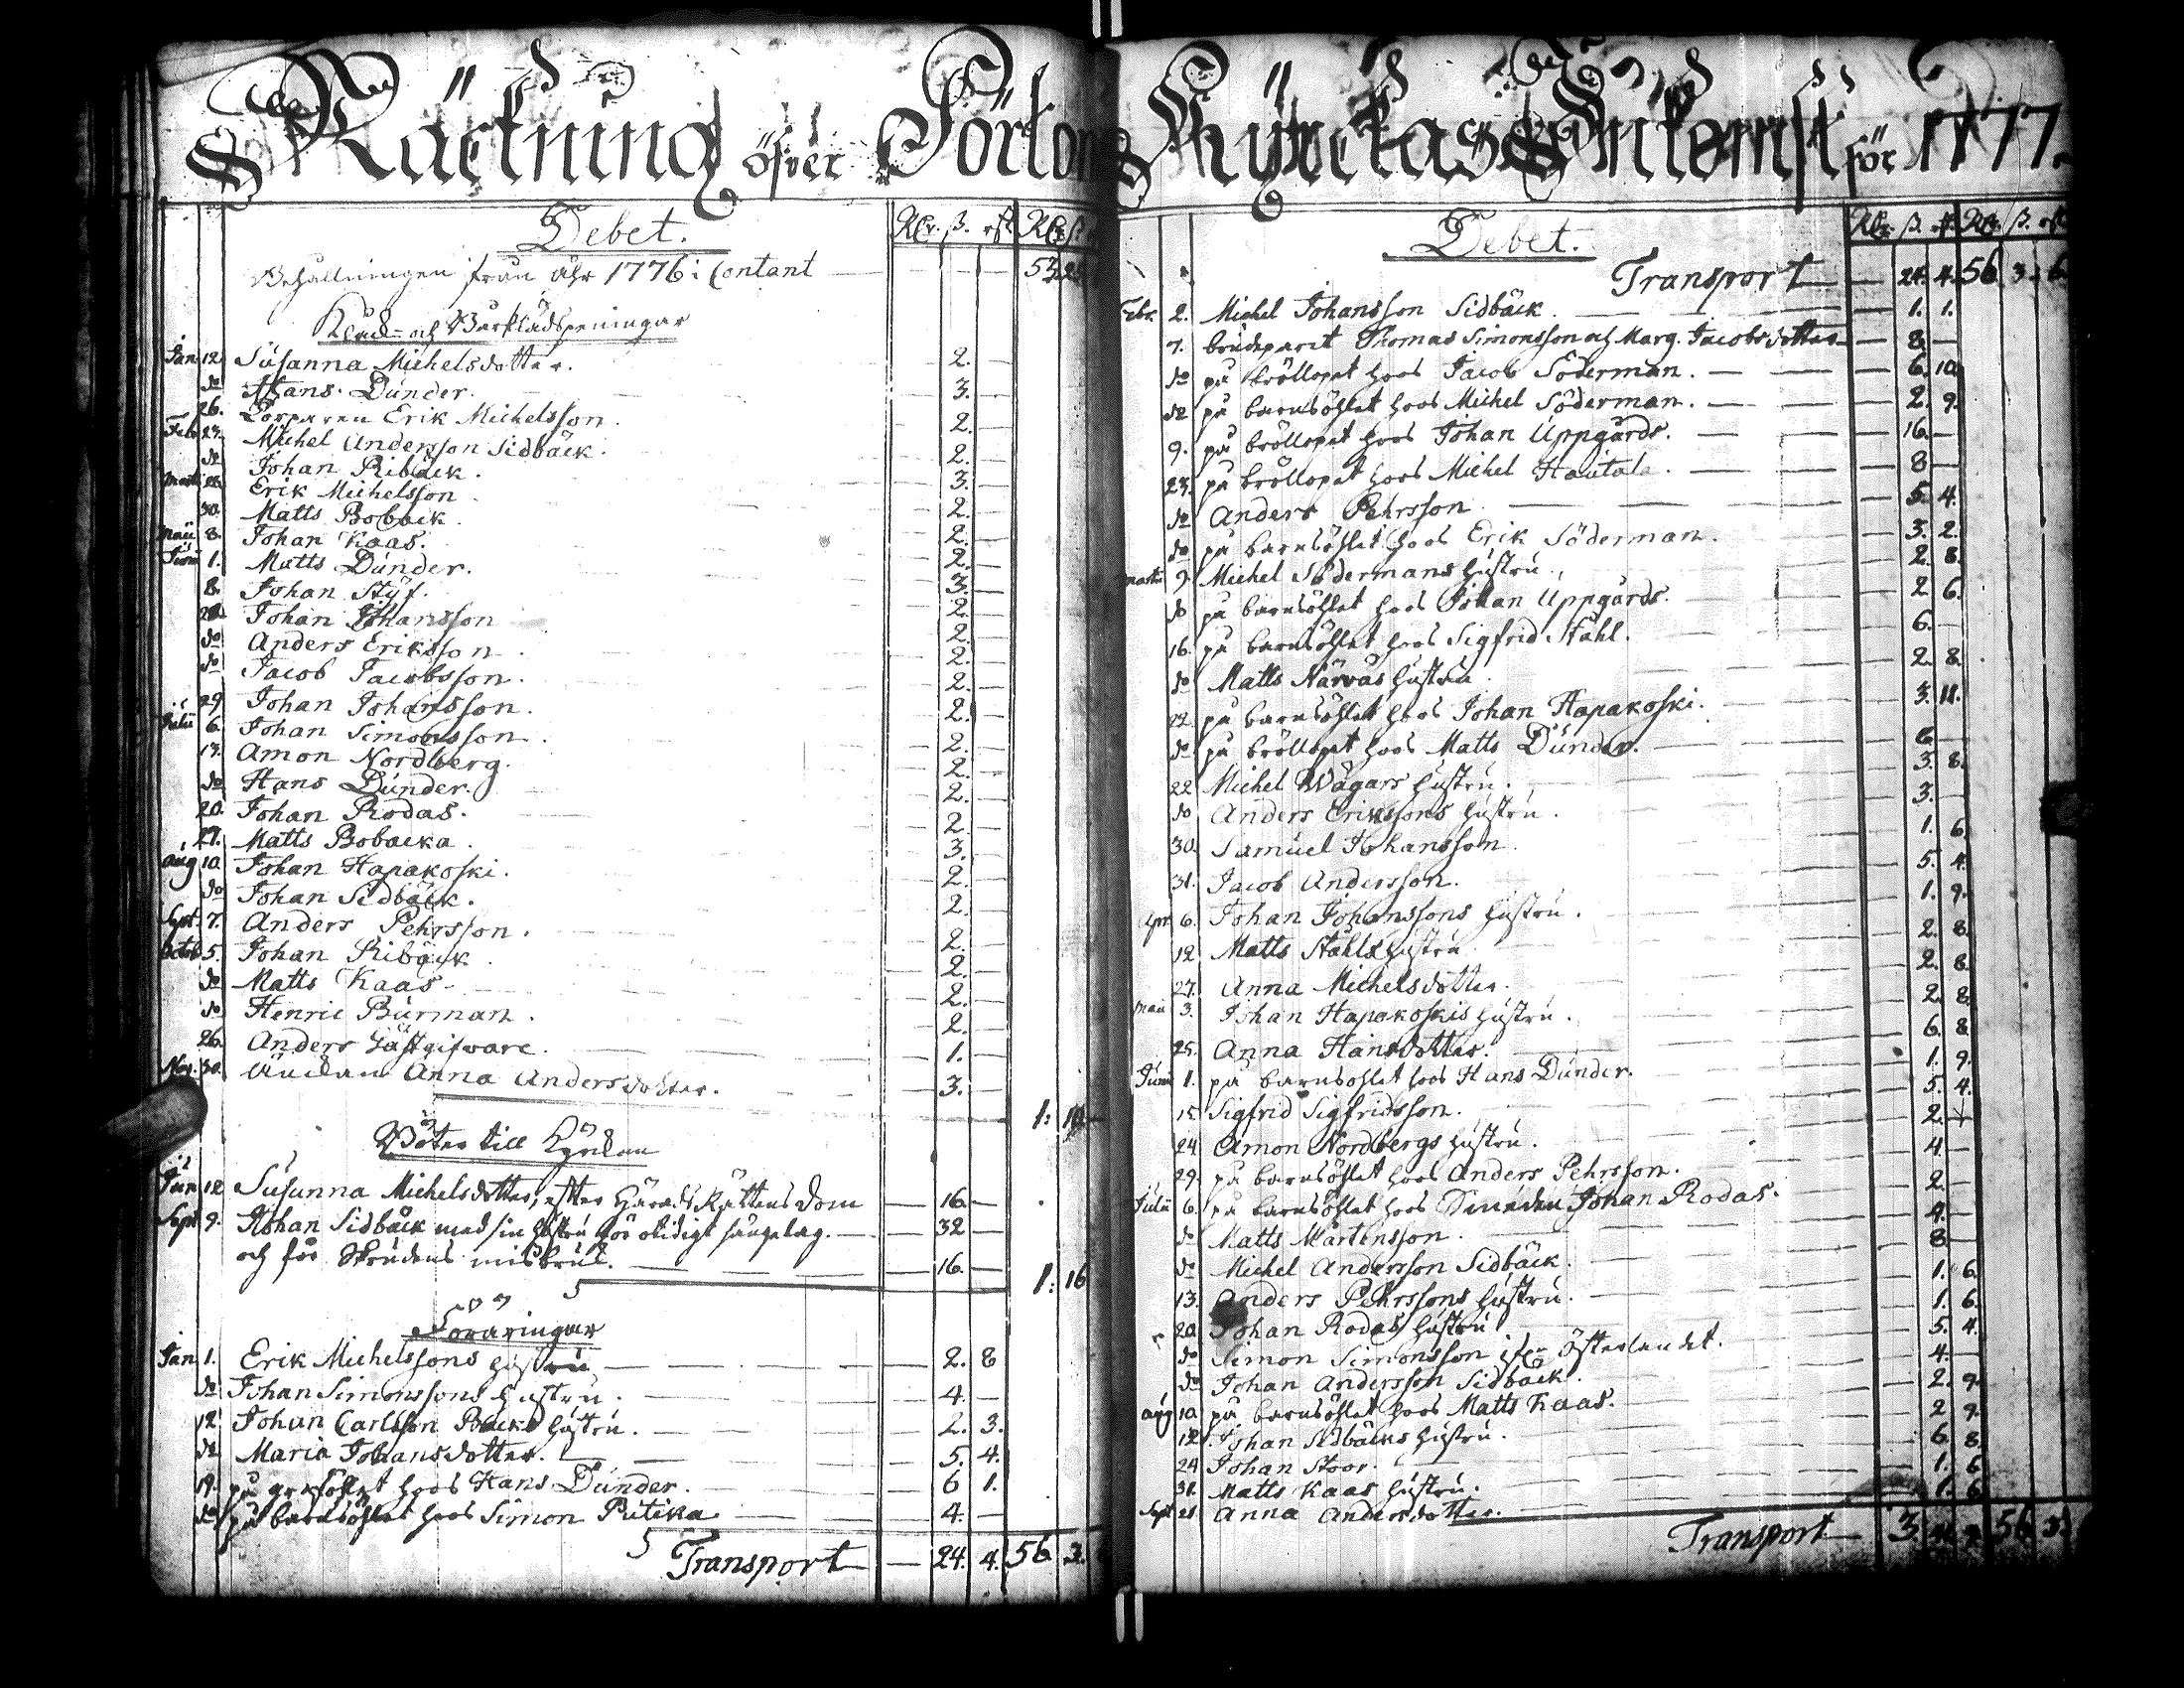 Räckning öfver Pörtom Kyrckas Inkomst för 1777.
Debet. Rdr. ß. rst. Rdr ß
Behållningen från åhr 1776 i Contant — — — 53. 25
Kläd- och Bårklädspeningar
Jan 12. Susanna Michelsdotter. 2. —
do Hans Dunder. 3. —
26. Torparen Erik Michelsson. 2. —
Feb. 23. Michel Andersson Sidbäck. 2. —
do Johan Ribäck. 3. —
Martii Erik Michelsson 2. —
30. Matts Boback. 2. —
Maii 8. Johan Kaas. 2. —
Junii 1. Matts Dunder. 3. —
8. Johan Styf. 2. —
Johan Johansson 2. —
do Anders Eriksson 2. —
do Jacob Jacobsson. 2. —
29 Johan Johansson. 2. —
Julii 6. Johan Simonsson. 2. —
13. Amon Nordberg. 2. —
do Hans Dunder. 2. —
20. Johan Rodas. 2 —
27. Matts Bobacka. 3. —
Aug 10 Johan Hapakoski. 2. —
do Johan Sidbäck. 2. —
Sept. 7. Anders Pehrsson. 2. —
Octob 5. Johan Ribäck 2. —
do Matts Kaas 2. —
do Henric Burman. 2. —
26. Anders Gästgifvare. 1. —
Nov. 30. Änckan Anna Andersdotter. 3. —
1: 10
Böter till Kyrckan
Jan 12 Susanna Michelsdotter, efter Härads Rättens Dom — 16. —
Sept 9. Johan Sidbäck med sin hustru för otidigt sängelag. — 32 —
och för Skrudens misbruk. — 16. —
1: 16
Föräringar
Jan 1. Erik Michelssons hustru — 2. 8
do Johan Simonssons hustru. 4. —
12 Johan Carlsson Backs hustru. 2. 3.
do Maria Johansdotter. 5. 4.
19. på graföhlet hoos Hans Dunder. 6 1.
do på barnsöhlet hoos Simon Putika 4. —
Transport — 24. 4. 56. 3.
Debet. Rdr. ß. rst. Rdr. ß. rst
Transport — 24. 4. 56 3. 6.
Febr. 2. Michel Johansson Sidbäck. 1. 1.
7. brudeparet Thomas Simonsson och Marg. Jacobsdotter — 8. —
do på bröllopet hoos Jacob Söderman. — 6. 10
do på barnsöhlet hoos Michel Söderman. — 2. 9.
9. på bröllopet hoos Johan Uppgårds. — 16. —
23. på bröllopet hoos Michel Hautala. — 8 —
do Anders Pehrsson — 5. 4.
do på barnsöhlet hoos Erik Söderman. 3. 2.
Martii 9. Michel Södermans hustru. 2. 8.
do på barnsöhlet hoos Johan Uppgårds. 2 6.
16. på barnsöhlet hoos Sigfrid Ståhl. 6. —
do Matts Närväs hustru. 2. 8.
22. på barnsöhlet hoos Johan Hapakoski. 3. 11.
do på bröllopet hoos Matts Dunder. 6. —
22 Michel Wägars hustru. 3. 8.
do Anders Erikssons hustru. 3. —
30. Samuel Johansson 1. 6
31. Jacob Andersson. 5. 4.
Apr. 6. Johan Johanssons hustru. 1. 9.
12 Matts Ståhls hustru 2. 8.
27. Anna Michelsdotter. 2. 8.
Maii 3. Johan Hapakoskis hustru. 2. 8
25. Anna Hansdotter. 6. 8
Junii 1. på barnsöhlet hoos Hans Dunder. 1. 9.
15. Sigfrid Sigfridsson. 5. 4.
24 Amon Nordbergs hustru. 2. —
29. på barnsöhlet hoos Anders Pehrsson. 4. —
Julii 6. på barnsöhlet hoos Johan Rodas. 2. —
do Matts Mårtensson. 4. —
do Michel Andersson Sidbäck. 8. —
13. Anders Pehrssons hustru. 1. 6.
20. Johan Rodas hustru 1. 6.
do Simon Simonsson ifrån Österlandet. 5. 4.
do Johan Andersson Sidbäck. 4. —
Aug 10 på barnsöhlet hoos Matts Kaas. 2. 9.
12. Johan Sidbäcks hustru. 2 9.
24 Johan Stoor. 6. 8.
31. Matts Kaas hustru. 1. 6
Sept 21 Anna Andersdotter. 1. 6
Transport — 3. 56 3.